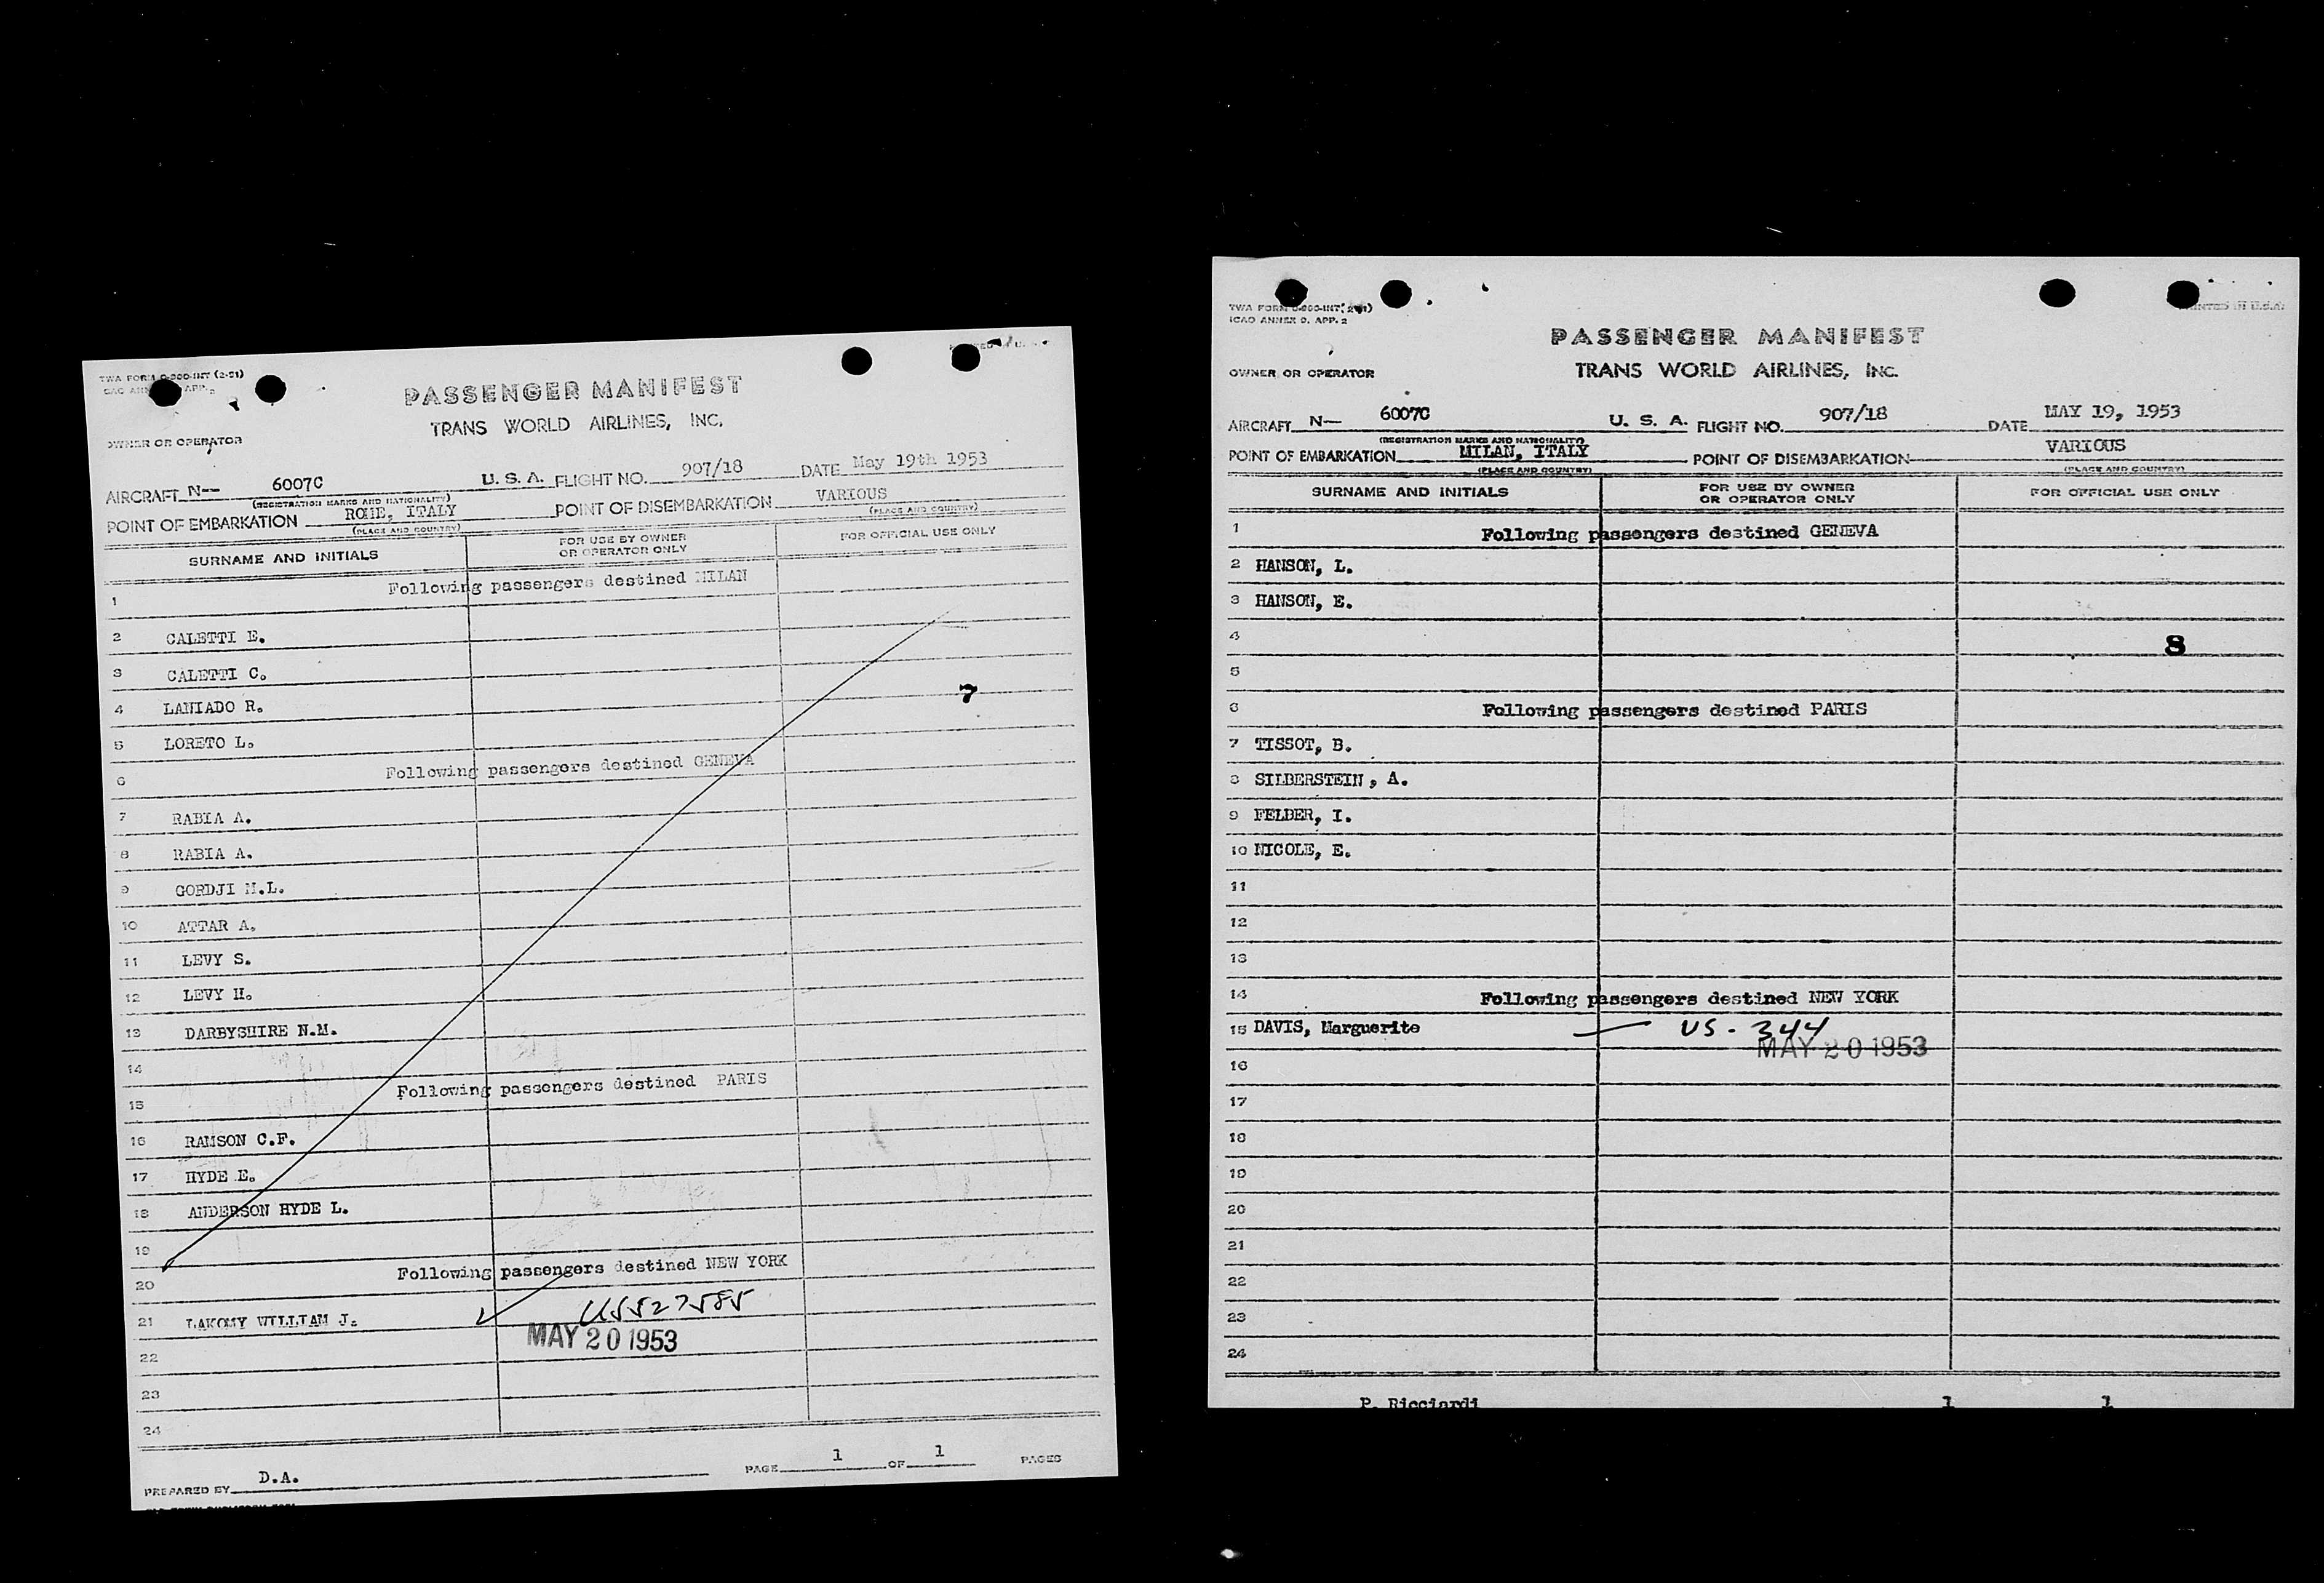 TWA FORM O-200-INT (2-51)
PASSENGER MANIFEST
TRANS WORLD AIRLINES, INC.
OWNER OR OPERATOR
AIRCRAFT N— 6007C U. S. A. FLIGHT NO. 907/18 DATE May 19th 1953
(REGISTRATION MARKS AND NATIONALITY)
POINT OF EMBARKATION ROME, ITALY POINT OF DISEMBARKATION VARIOUS
(PLACE AND COUNTRY) (PLACE AND COUNTRY)
SURNAME AND INITIALS FOR USE BY OWNER OR OPERATOR ONLY FOR OFFICIAL USE ONLY
1 Following passengers destined MILAN
2 CALETTI E.
3 CALETTI C.
4 LANIADO R. 7
5 LORETO L.
6 Following passengers destined GENEVA
7 RABIA A.
8 RABIA A.
9 GORDJI M.L.
10 ATTAR A.
11 LEVY S.
12 LEVY H.
13 DARBYSHIRE N.M.
14
15 Following passengers destined PARIS
16 RAMSON C.F.
17 HYDE E.
18 ANDERSON HYDE L.
19
20 Following passengers destined NEW YORK
21 LAKOMY WILLIAM J. US527585
MAY 20 1953
22
23
24
PREPARED BY D.A. PAGE 1 OF 1 PAGES
ICAO ANNEX 9, APP. 2
PRINTED IN U.S.A.
PASSENGER MANIFEST
TRANS WORLD AIRLINES, INC.
OWNER OR OPERATOR
AIRCRAFT N— 6007C U. S. A. FLIGHT NO. 907/18 DATE MAY 19, 1953
(REGISTRATION MARKS AND NATIONALITY)
POINT OF EMBARKATION MILAN, ITALY POINT OF DISEMBARKATION VARIOUS
(PLACE AND COUNTRY) (PLACE AND COUNTRY)
SURNAME AND INITIALS FOR USE BY OWNER OR OPERATOR ONLY FOR OFFICIAL USE ONLY
1 Following passengers destined GENEVA
2 HANSON, L.
3 HANSON, E.
4 8
5
6 Following passengers destined PARIS
7 TISSOT, B.
8 SILBERSTEIN, A.
9 FELBER, I.
10 NICOLE, E.
11
12
13
14 Following passengers destined NEW YORK
15 DAVIS, Marguerite — US - 344
MAY 20 1953
16
17
18
19
20
21
22
23
24
P. Ricciardi 1 1